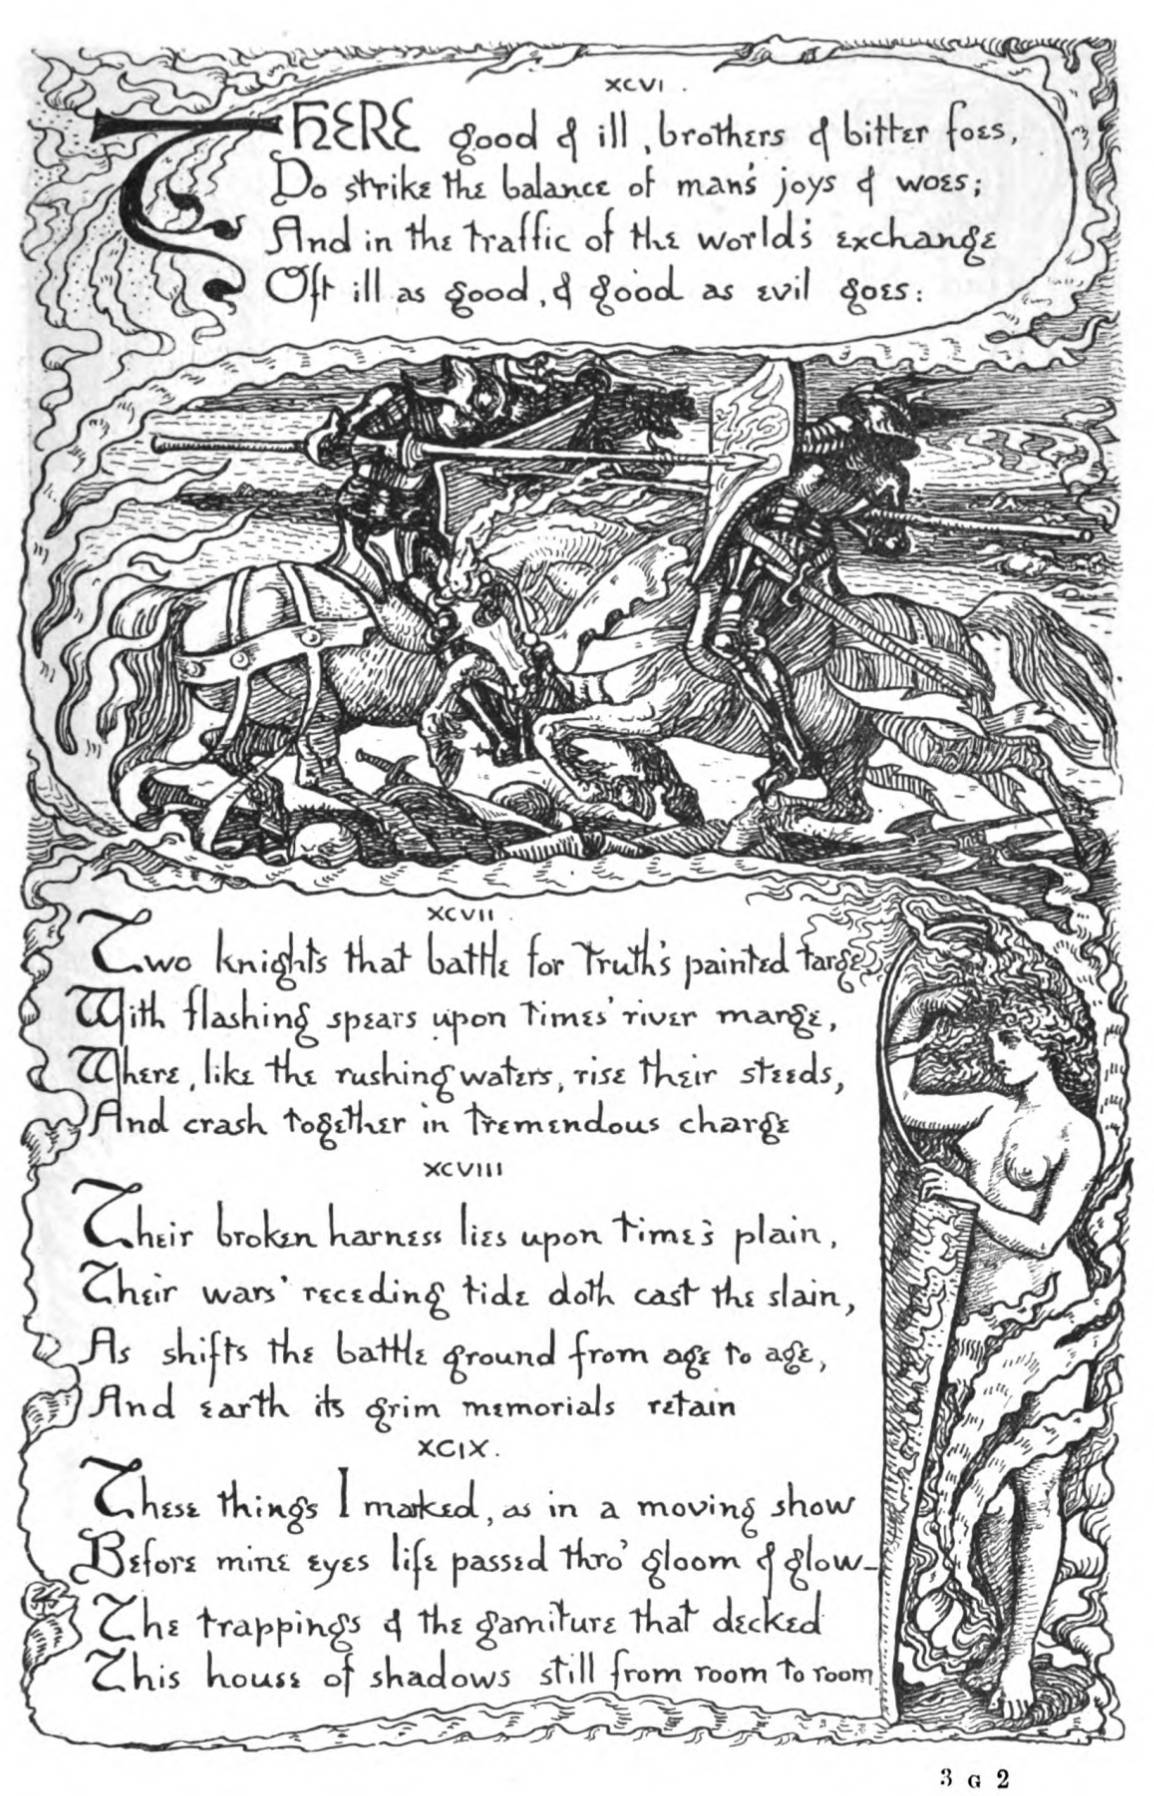 XCVI.
THERE good & ill, brothers & bitter foes,
Do strike the balance of man's joys & woes;
And in the traffic of the world's exchange
Oft ill as good, & good as evil goes:
XCVII.
Two knights that battle for Truth's painted targe,
With flashing spears upon Times' river marge,
Where, like the rushing waters, rise their steeds,
And crash together in tremendous charge
XCVIII
Their broken harness lies upon Time's plain,
Their wars' receding tide doth cast the slain,
As shifts the battle ground from age to age,
And earth its grim memorials retain
XCIX.
These things I marked, as in a moving show
Before mine eyes life passed thro' gloom & glow—
The trappings & the garniture that decked
This house of shadows still from room to room
3 G 2